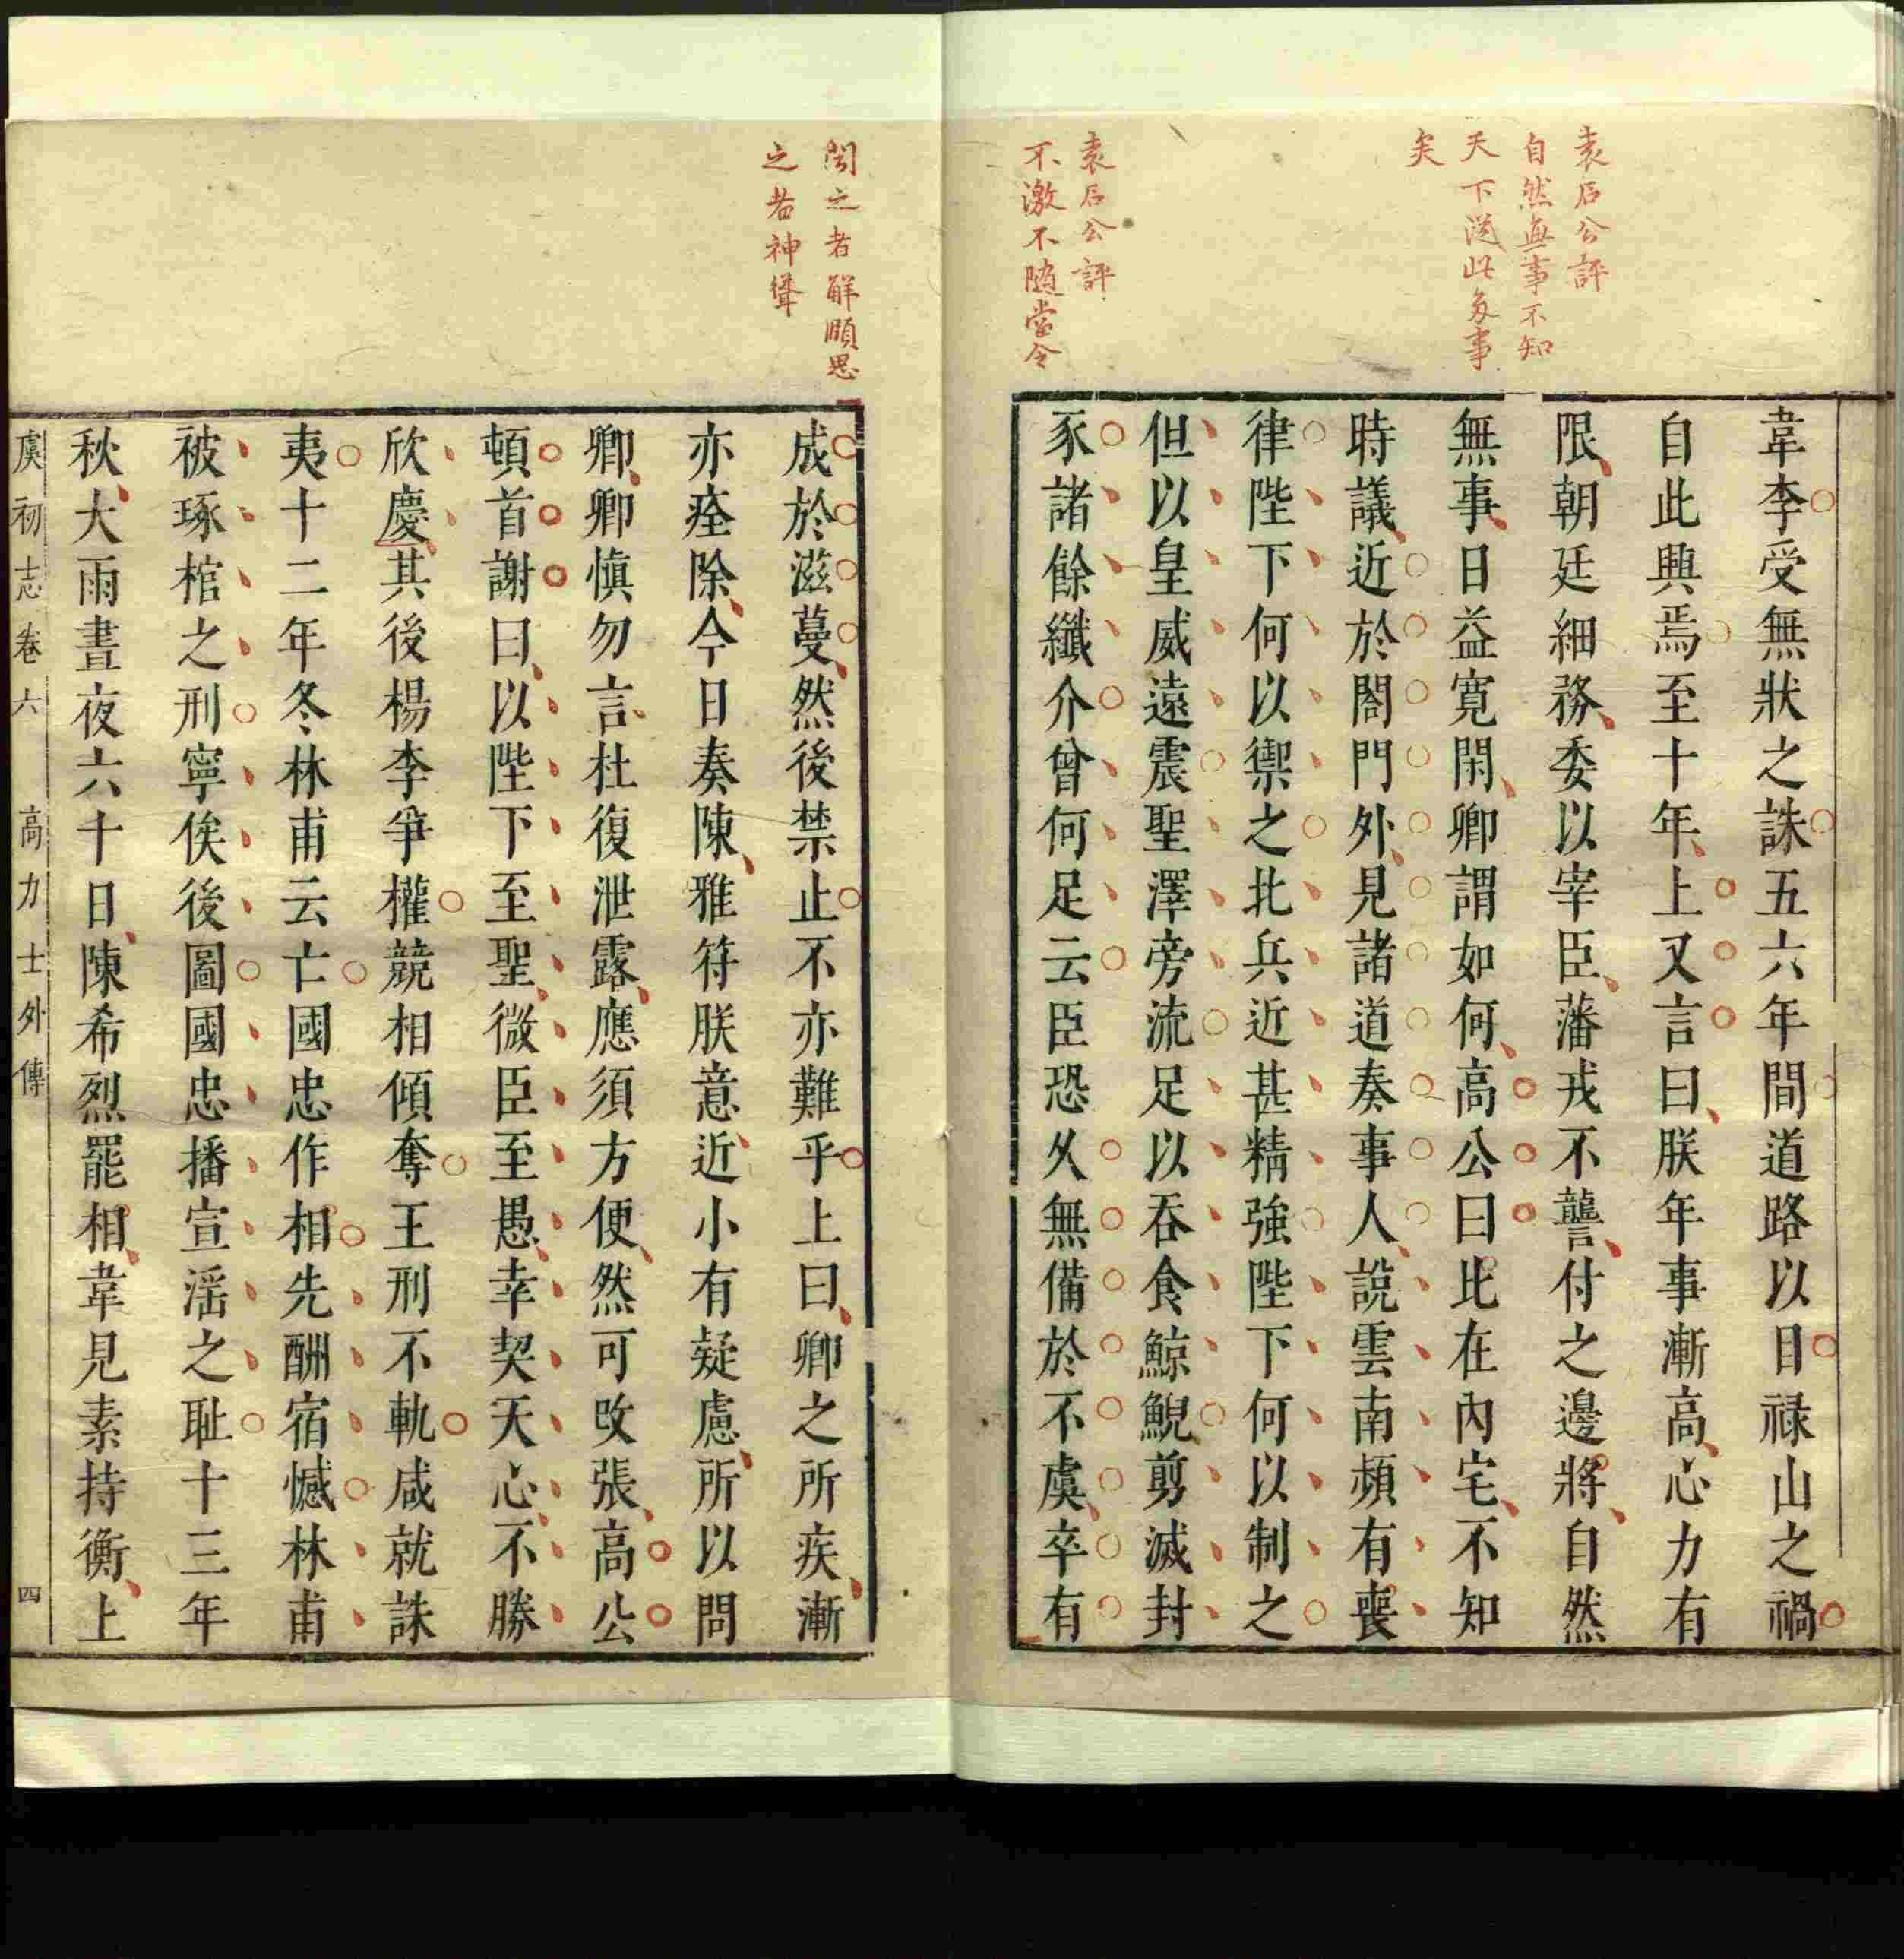 袁石公評
自然無事不知
天下從此多事
矣
袁石公評
不激不隨當令
韋李受無狀之誅五六年間道路以目祿山之禍
自此興焉至十年上又言曰朕年事漸高心力有
限朝廷細務委以宰臣藩戎不讋付之邊將自然
無事日益寬閑卿謂如何高公曰比在內宅不知
時議近於閤門外見諸道奏事人說雲南頻有喪
律陛下何以禦之北兵近甚精強陛下何以制之
但以皇威遠震聖澤旁流足以吞食鯨鯢剪滅封
豕諸餘纖介曾何足云臣恐久無備於不虞卒有
聞之者解頤思
之者神聳
成於滋蔓然後禁止不亦難乎上曰卿之所疾漸
亦痊除今日奏陳雅符朕意近小有疑慮所以問
卿卿慎勿言杜復泄露應須方便然可改張高公
頓首謝曰以陛下至聖微臣至愚幸契天心不勝
欣慶其後楊李爭權競相傾奪王刑不軌咸就誅
夷十二年冬林甫云亡國忠作相先酬宿憾林甫
被琢棺之刑寧俟後圖國忠播宣滛之耻十三年
秋大雨晝夜六十日陳希烈罷相韋見素持衡上
虞初志卷六 高力士外傳 四